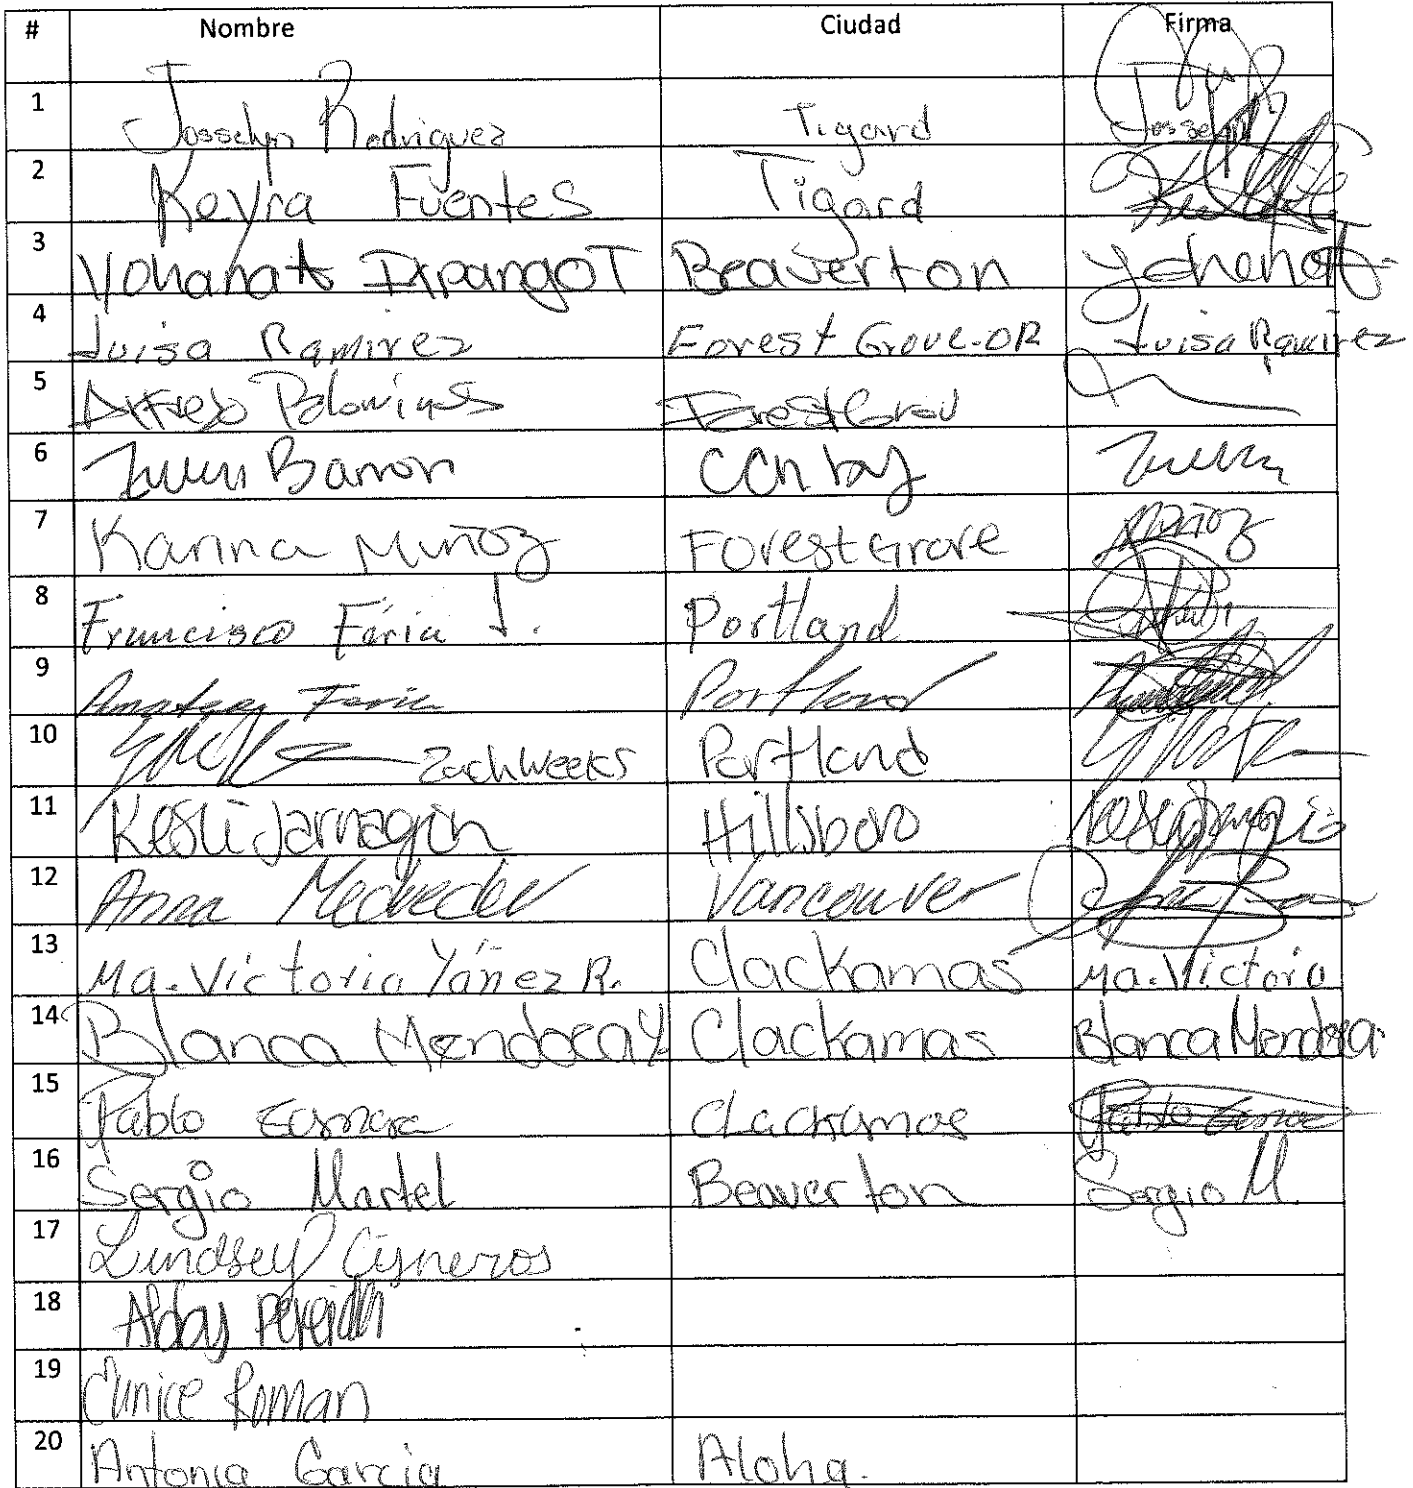 # Nombre Ciudad Firma
1 Josselyn Rodriguez Tigard Josselyn
2 Keyra Fuentes Tigard
3 Yohanat IxpangoT Beaverton Yohanat
4 Luisa Ramirez Forest Grove-OR Luisa Ramirez
5 Alfredo ForestGrov
6 Barron
7 Karina Muñoz Forest Grove Muñoz
8 Francisco Faria J. Portland
9 Faria Portland
10 Zach Weeks Portland
11 Kesli Jarnagin Hillsboro
12 Anna Medvedev Vancouver
13 Ma. Victoria Yáñez R. Clackamas Ma. Victoria
14 Blanca Mendoca Y. Clackamas Blanca Mendoza
15 Pablo Clackamas Pablo
16 Sergio Martel Beaverton Sergio M.
17 Lindsey Cisneros
18
19 Eunice Roman
20 Antonia Garcia Aloha.